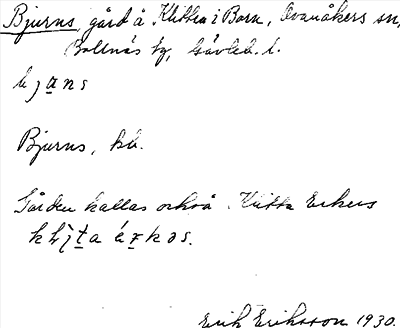 Bjurns, gård å Klitta i Born, Ovanåkers sn,
Bollnäs tg, Gävleb. l.
bjans
Bjurns, kb.
Gården kallas också Klitta Erkers
Erik Eriksson 1930.